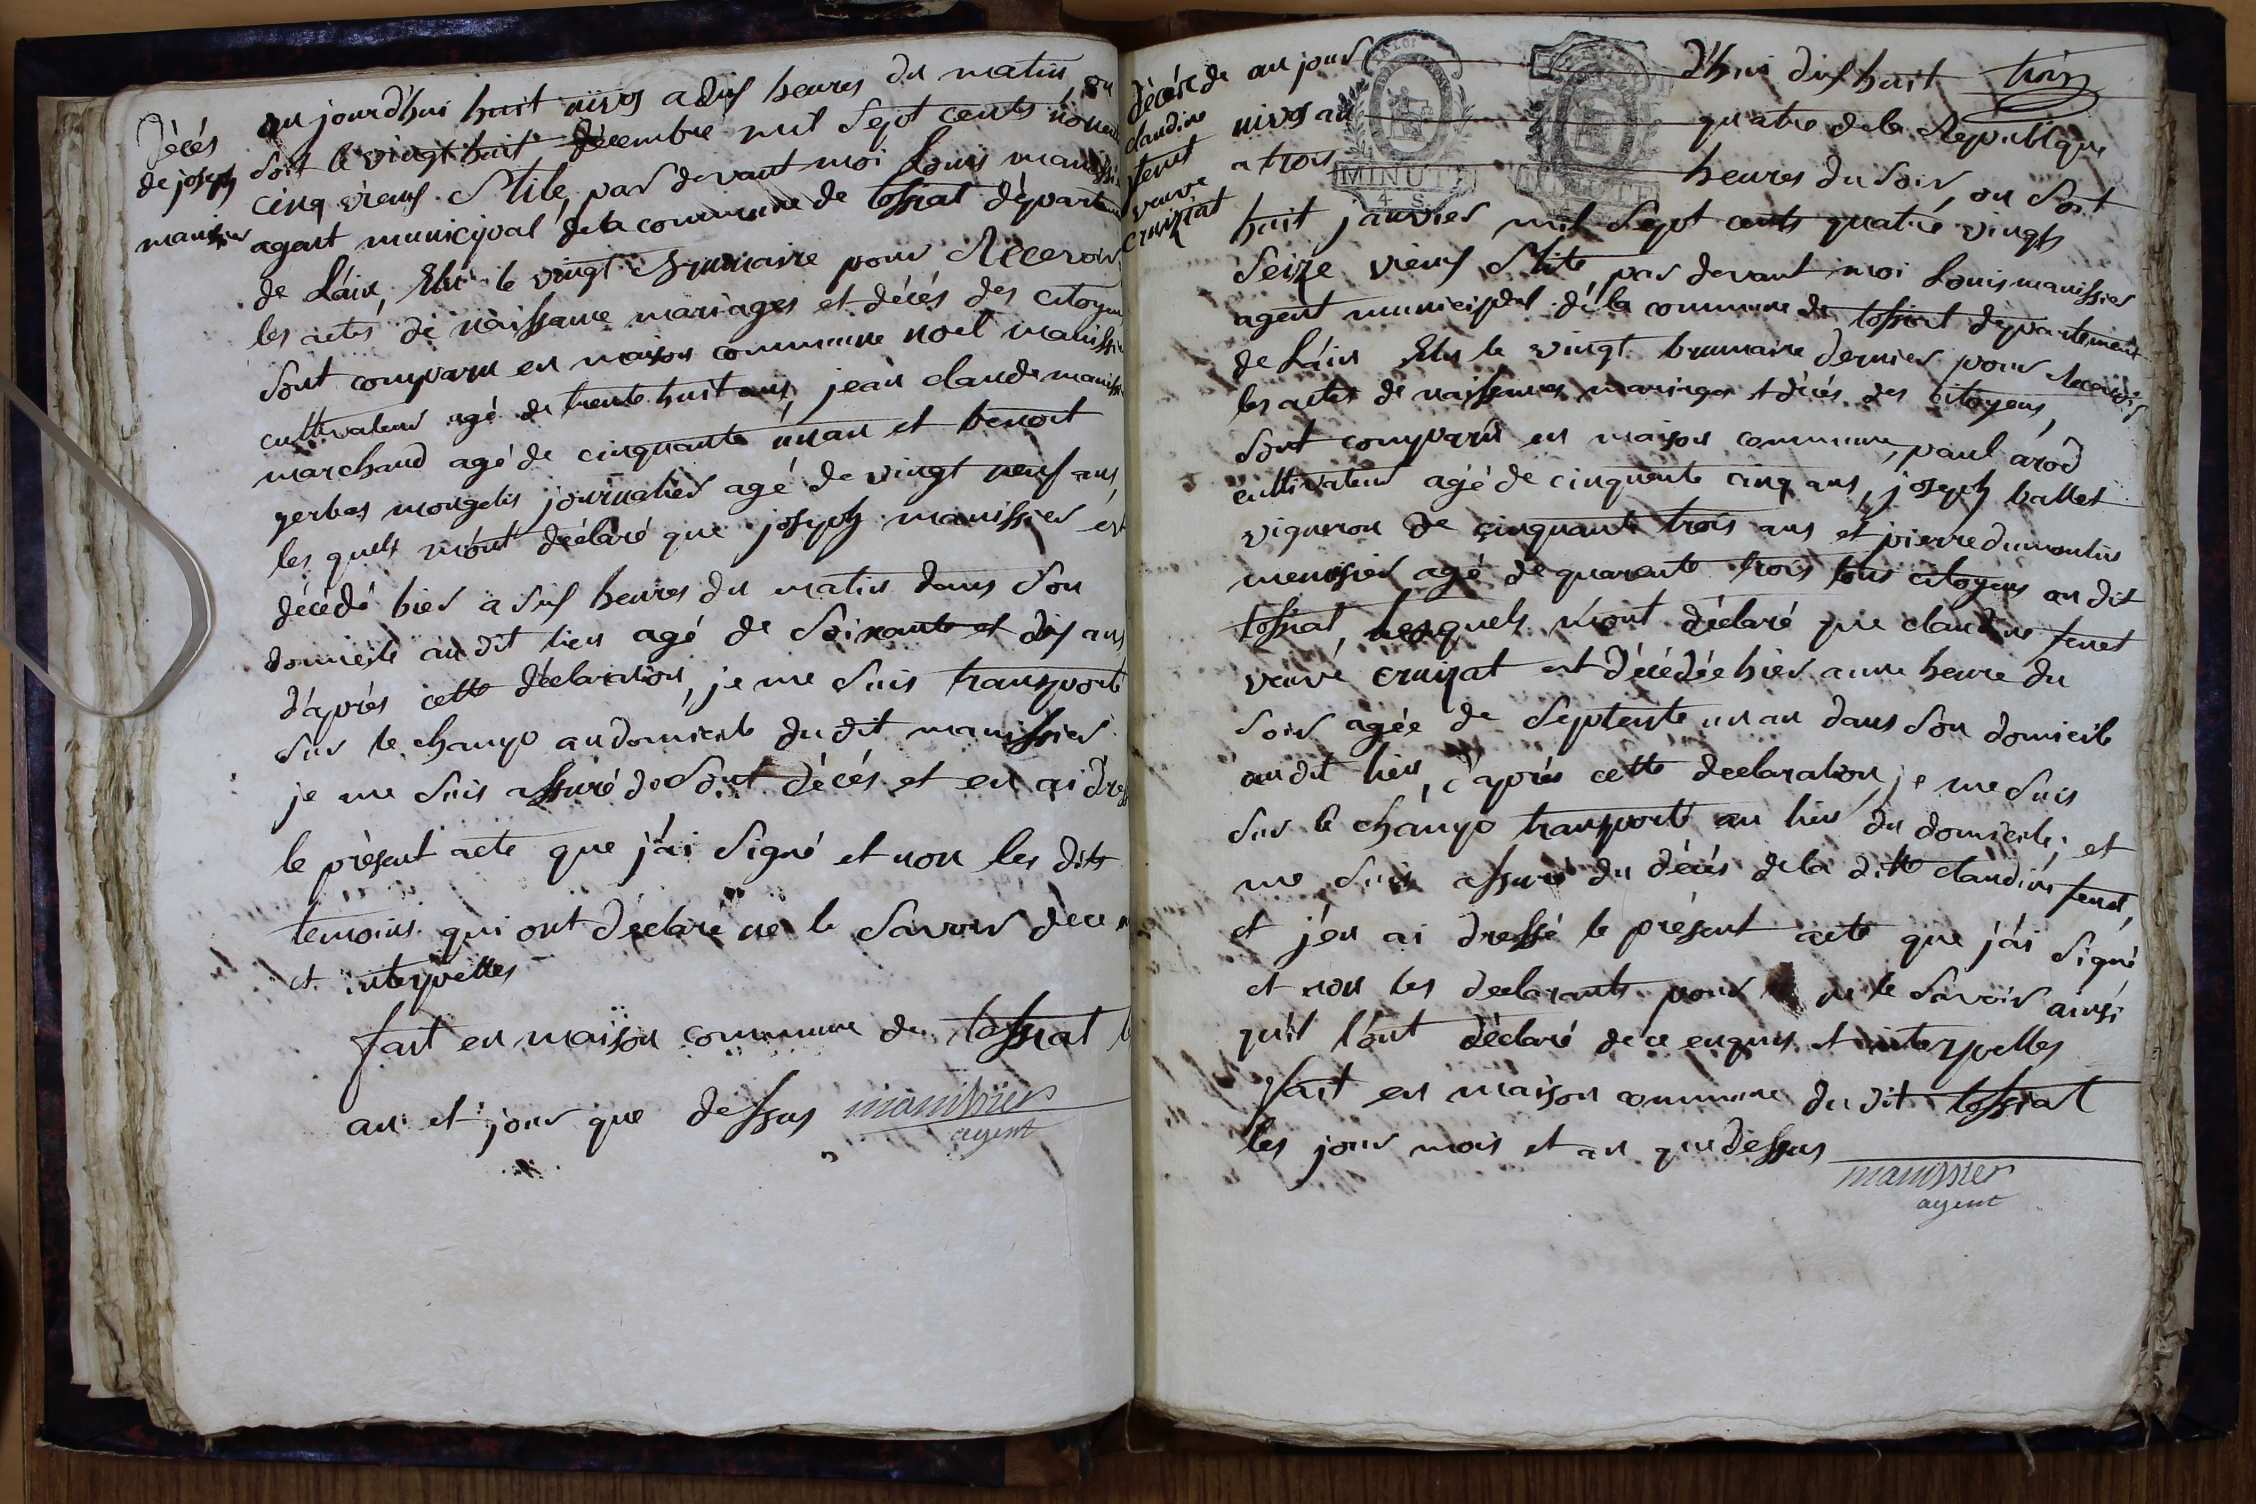 Décés
de joseph
manissier
au jourd'hui huit nivos a dix heures du matin, ou
soit le vingt huit décembre mil sept cents nonante
cinq vieux stile, par devant moi Louis manissier
agent municipal de la commune de tossiat départem
de Láin, Elu le vingt brumaire pour Recevoir
les actes de naissance mariages et décés des citoyens
sont comparu en maison commune noel manissier
cultivateur agé de trente huit ans, jean claude maniss
marchand agé de cinquante un an et benoit
gerbas mongelis journalier agé de vingt neuf ans,
les quels m'ont déclaré que joseph manissier est
décédé hier a dix heures du matin dans son
domicile au dit lieu agé de soixante et dix ans
d'aprés cette déclaration, je me suis transporté
sur le champ au domicile du dit manissier
je me suis assuré de sont décés et en ai dress
le présent acte que j'ai signé et non les dits
temoins qui ont déclaré ne le savoir de ce
et interpelles
fait en maison commune du tossiat
an et jour que dessus manissier
agent
décés de
claudine
feret
veuve
cruizat
MINUTE
4 S
au jour d'hui dix huit trois
nivos an quatre de la Republique
a trois heures du soir, ou soit
huit janvier mil sept cents quatre vingts
seize vieux stile par devant moi Louis manissier
agent municipal de la commune de tossiat département
de Láin Elu le vingt brumaire dernier pour Recevoir
les actes de naissances mariages et décés des citoyens,
sont comparus en maison commune, paul arod
cultivateur agé de cinquante cinq ans, joseph ballet
vigneron de cinquante trois ans et pierre dumoulin
menusier agé de quarente trois tous citoyens au dit
tossiat, lesquels m'ont déclaré que claudine feret
veuve cruizat est décédée hier a une heure du
soir agée de septente un an dans son domicile
au dit lieu, d'aprés cette declaration, je me suis
sur le champ transporté au lieu du domicile, et
me suis assuré du décés de la ditte claudine feret,
et j'en ai dressé le présent acte que j'ai signé
et non les declarants pour ne le savoir ainsi
qu'il l'ont déclaré de ce enquis et interpelles
fait en maison commune du dit tossiat
les jour mois et an que dessus
manissier
agent